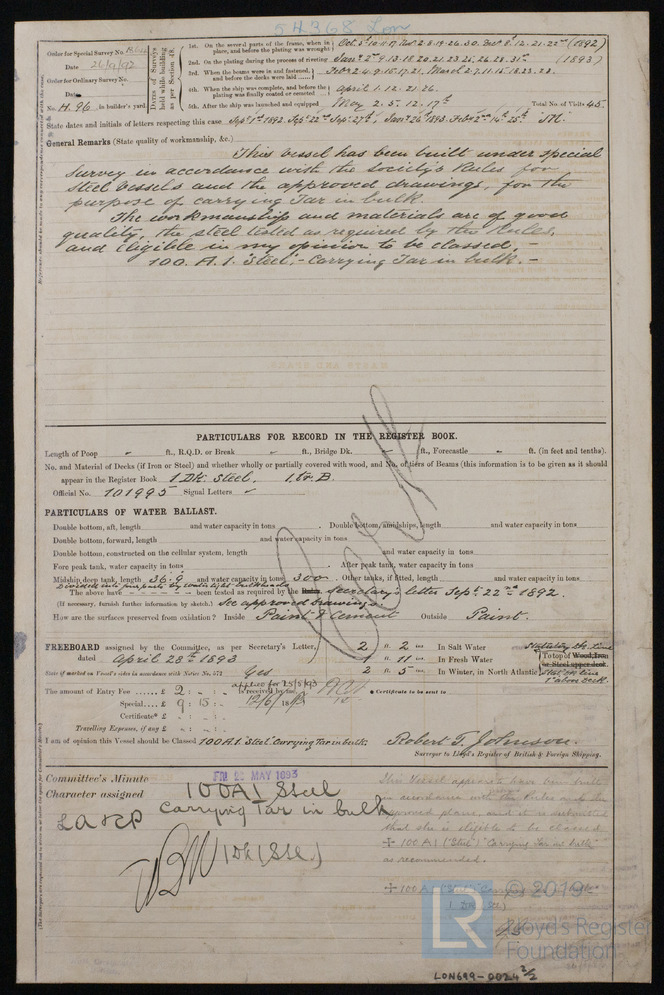 54368 Lon
Order for Special Survey No.
Date 26/9/92
Order for Ordinary Survey No.
Date
No. H. 96 in builder's yard.
Dates of Surveys held while building as per Section 18.
1st. On the several parts of the frame, when in place, and before the plating was wrought
2nd. On the plating during the process of riveting
3rd. When the beams were in and fastened, and before the decks were laid
4th. When the ship was complete, and before the plating was finally coated or cemented
April 1. 12. 21. 26.
5th. After the ship was launched and equipped
May 2. 5. 12. 17th
Total No. of Visits 45.
State dates and initials of letters respecting this case
General Remarks (State quality of workmanship, &c.)
This vessel has been built under special
survey in accordance with the Society's Rules for
steel vessels and the approved drawings, for the
purpose of carrying Tar in bulk.
The workmanship and materials are of good
quality, the steel tested as required by the Rules,
and eligible in my opinion to be classed, –
100. A. 1. "Steel", – Carrying Tar in bulk. –
PARTICULARS FOR RECORD IN THE REGISTER BOOK.
Length of Poop ft., R.Q.D. or Break ft., Bridge Dk. ft., Forecastle ft. (in feet and tenths).
No. and Material of Decks (if Iron or Steel) and whether wholly or partially covered with wood, and No. of tiers of Beams (this information is to be given as it should
appear in the Register Book 1 Dk. Steel, 1 tr. B.
Official No. 101995 Signal Letters
PARTICULARS OF WATER BALLAST.
Double bottom, aft, length and water capacity in tons . Double bottom, amidships, length and water capacity in tons
Double bottom, forward, length and water capacity in tons
Double bottom, constructed on the cellular system, length and water capacity in tons
Fore peak tank, water capacity in tons . After peak tank, water capacity in tons
Midship deep tank, length 36.9 and water capacity in tons 300. Other tanks, if fitted, length and water capacity in tons
Divided into parts by water tight bulkheads
The above have been tested as required by the Secretary's letter Sept. 22nd 1892.
(If necessary, furnish further information by sketch.) See approved Drawings.
How are the surfaces preserved from oxidation? Inside Paint & Cement Outside Paint.
FREEBOARD assigned by the Committee, as per Secretary's Letter, 2 ft 2 ins In Salt Water
dated April 28th 1893 11 ins In Fresh Water
State if marked on Vessel's sides in accordance with Notice No. 572 Yes 2 ft 5 ins In Winter, in North Atlantic
Statutory dk. line
To top of Wood, Iron or Steel upper deck.
Stat. dk line 1" above Deck.
Applied for 25/5/93
The amount of Entry Fee £ 2 : - : - received by me,
Special £ 9 : 15 : - 12/6/1893
Certificate £ - : - :
Certificate to be sent to
Travelling Expenses, if any £
I am of opinion this Vessel should be Classed 100 A. 1. "Steel" Carrying Tar in bulk.
Robert T. Johnson.
Surveyor to Lloyd's Register of British & Foreign Shipping.
Committee's Minute FRI 26 MAY 1893
Character assigned 100A1 Steel
Carrying Tar in bulk
LA & CP
1 Dk (Stl.)
This Vessel appears to have been built
in accordance with the Rules and the
approved plans, and it is submitted
that she is eligible to be classed
✠ 100 A1 ("Steel") "Carrying Tar in bulk"
as recommended.
✠ 100 A1 "Steel" Carrying Tar in bulk
1 Dk (Stl)
LR © 2019
Lloyd's Register
Foundation
LON699-0024 2/2